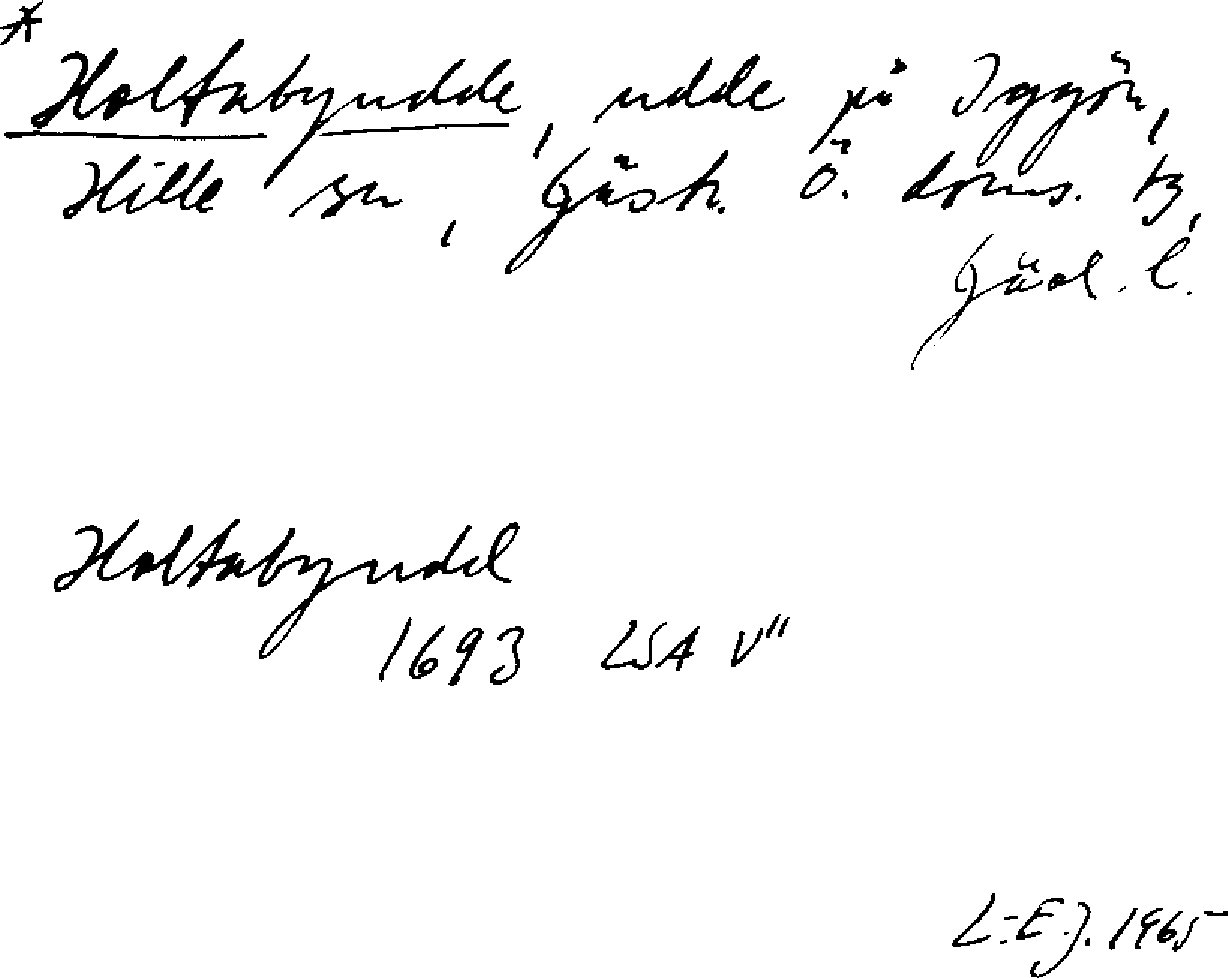 *
Holtabyudde, udde på Iggön,
Hille sn, Gästr. Ö. doms. tg,
Gävl. l.
Holtabyudd
1693 LSA V"
L-E.J. 1965